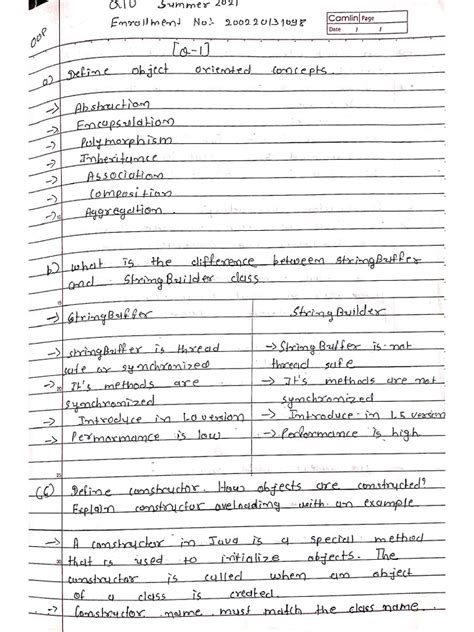 GTU Summer 2021
Enrollment No:- 200220131098
Camlin Page
Date / /
OOP
[Q-1]
a) Define object oriented concepts.
-> Abstraction
-> Encapsulation
-> Polymorphism
-> Inheritance
-> Association
-> Composition
-> Aggregation.
b) what is the difference between StringBuffer
and StringBuilder class
-> StringBuffer
StringBuilder
-> StringBuffer is thread
safe or synchronized
-> It's methods are
synchronized
-> Introduce in 1.0 version
-> Permormance is low
-> StringBuffer is not
thread safe
-> It's methods are not
synchronized
-> Introduce in 1.5 version
-> Performance is high
Define constructor. How objects are constructed?
Explain constructor overloading with an example
-> A constructor in Java is a special method
that is used to initialize objects. The
constructor is called when an object
of a class is created.
-> Constructor name must match the class name